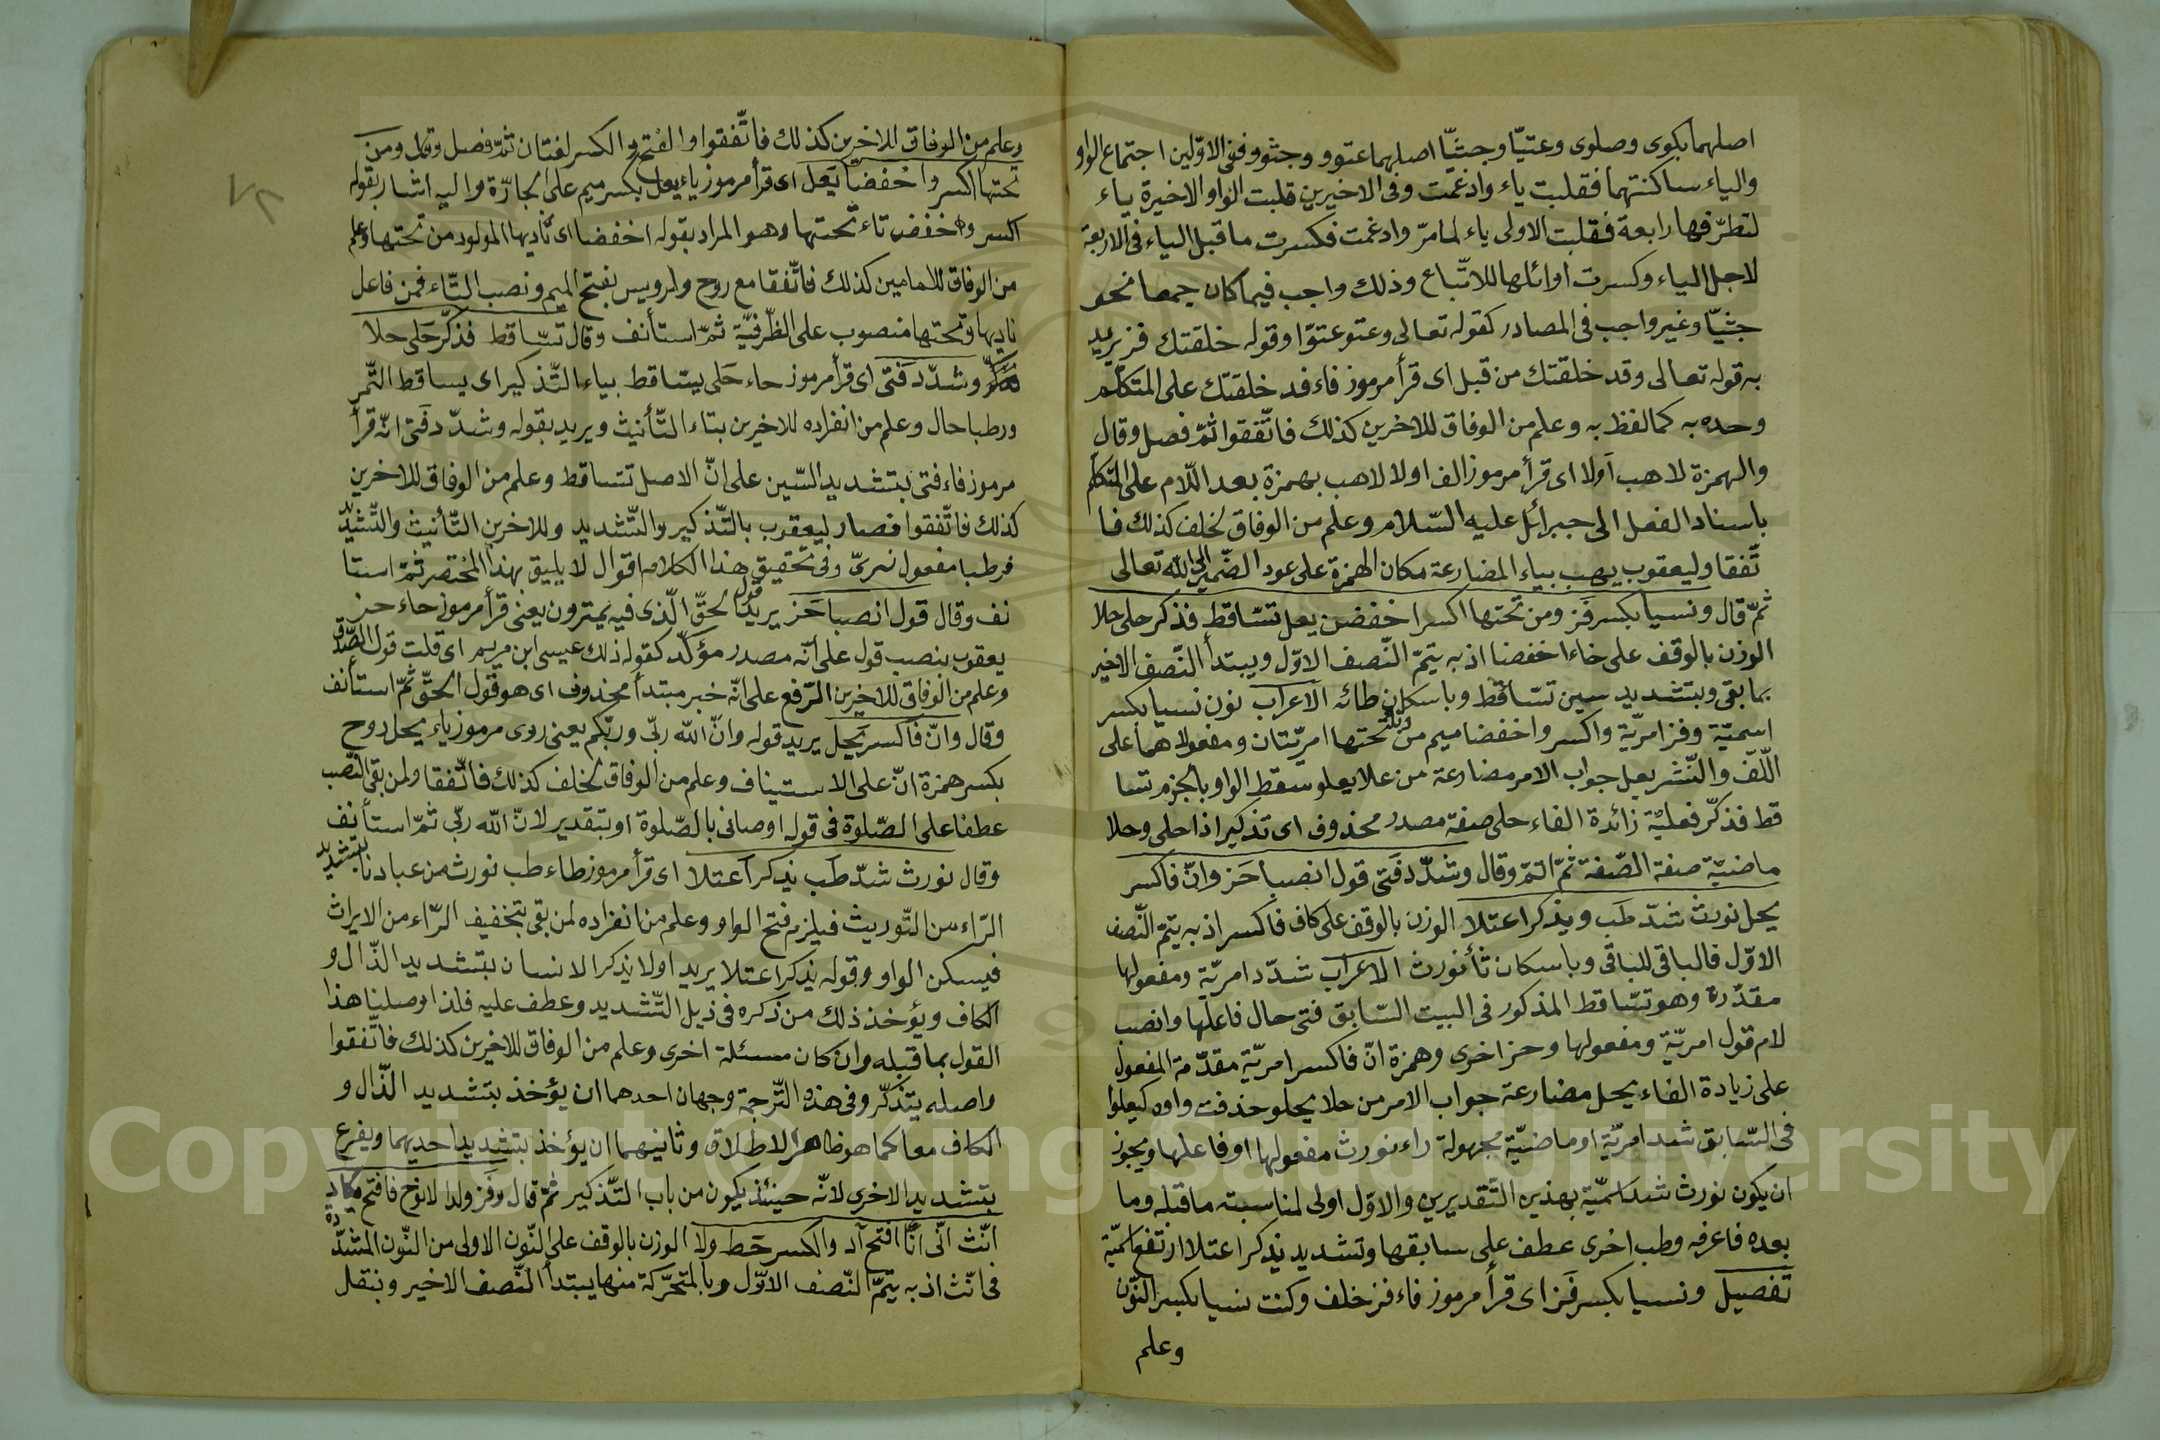 اصلهما بكوى وصلوى وعتيّا وجثيّا اصلهما عتوو وجثوو ففى الاوّلين اجتماع الواو
والياء ساكنتهما فقلبت ياء وادغمت وفى الاخيرين قلبت الواو الاخيرة ياء
لتطرّفها رابعة فقلبت الاولى ياء لما مرّ وادغمت فكسرت ما قبل الياء فى الاربعة
لاجل الياء وكسرت اوائلها للاتّباع وذلك واجب فيما كان جمعا نحو
جثيّا وغير واجب فى المصادر كقوله تعالى وعتو عتوّا وقوله خلقتك فز يريد
به قوله تعالى وقد خلقتك من قبل اى قرأ مرموز فاء فد خلقتك على المتكلّم
وحده به كما لفظ به وعلم من الوفاق للاخرين كذلك فاتّفقوا ثمّ فصل وقال
والهمزة لاهب أولا اى قرأ مرموز الف اولا لاهب بهمزة بعد اللّام على المتكلم
باسناد الفعل الى جبرائل عليه السّلام وعلم من الوفاق لخلف كذلك فا
تّفقا وليعقوب يهب بياء المضارعة مكان الهمزة على عود الضّمير الى الله تعالى
ثمّ قال ونسيا بكسر فَز ومن تحتها اكسرا خفضن يعل تسّاقط فذكر حلى حلا
الوزن بالوقف على خاء اخفضنا اذ به يتمّ النّصف الاوّل ويبتدأ النّصف الاخير
بما بقى وبتشديد سين تسّاقط وباسكان طائه الاعراب نون نسيا بكسر
اسميّة وفز امريّة واكسر واخفضا ميم من وتاء تحتها امريّتان ومفعولا هما على
اللّف والنّشر يعل جواب الامر مضارعة من علا يعلو سقط الواو بالجزم تسا
قط فذكّر فعليّة زائدة الفاء حلى صفة مصدر محذوف اى تذكيرا ذا حلى وحلا
ماضيّة صفة الصّفة ثمّ اتمّ وقال وشدّد فَتى قول انصبا حَز وانّ فاكسر
يحل نورث شدّ طَب ويذكر اعتلا الوزن بالوقف على كاف فاكسر اذ به يتمّ النّصف
الاوّل فالباقى للباقى وباسكان ثأ نورث الاعراب شدّد امريّة ومفعولها
مقدّرة وهو تسّاقط المذكور فى البيت السّابق فتى حال فاعلها وانصب
لام قول امريّة ومفعولها وحز اخرى وهمزة انّ فاكسر امريّة مقدّمة المفعول
على زيادة الفاء يحل مضارعة جواب الامر من حلا يحلو حذفت واوه كيعلوا
فى السّابق شد امريّة او ماضيّة مجهولة راء نورث مفعولها او فاعلها ويجوز
ان يكون نورث شد اسميّة بهذيه التّقديرين والاوّل اولى لمناسبته ما قبله وما
بعده فاعرفه وطب اخرى عطف على سابقها وتشديد يذكر اعتلا ارتفع اسميّة
تفصيل ونسيا بكسر فَز اى قرأ مرموز فاء فز خلف وكنت نسيا بكسر النّون
وعلم
وعلم من الوفاق للاخرين كذلك فاتّفقوا والفتح والكسر لغتان ثمّ فصل وقال ومن
تحتها اكسر واخفضا يَعل اى قرأ مرموز ياء يعل بكسر ميم على الجارّة واليه اشار بقوله
اكسر واخفض تاء تحتها وهو المراد بقوله اخفضا اى ناديها المولود من تحتها وعلم
من الوفاق للامامين كذلك فاتّفقا مع روح ولرويس بفتح الميم ونصب التّاء فمن فاعل
ناديها وتحتها منصوب على الظّرفيّة ثمّ استأنف وقال تسّاقط فذكّر حَلى حلا
وشدّد فَتى اى قرأ مرموز حاء حَلى يسّاقط بياء التّذكير اى يساقط التّمر
ورطبا حال وعلم من انفراده للاخيرين بتاء التّأنيث ويريد بقوله وشدّد فَتى انّه قرأ
مرموز فاء فتى بتشديد السّين على انّ الاصل تتساقط وعلم من الوفاق للاخرين
كذلك فاتّفقوا فصار ليعقوب بالتّذكير والتّشديد وللاخرين التّأنيث والتّشديد
فرطبا مفعول نهزىّ وفى تحقيق هذا الكلام اقوال لا يليق بهذا المختصر ثمّ استا
نف وقال قول انصبا حَز يريد قول الحقّ الّذى فيه يمترون يعنى قرأ مرموز حاء حز
يعقوب بنصب قول على انّه مصدر مؤكّد كقوله ذلك عيسى ابن مريم اى قلت قول الصّدق
وعلم من الوفاق للاخرين الرّفع على انّه خبر مبتدأ محذوف اى هو قول الحقّ ثمّ استأنف
وقال وانّ فاكسر يَحل يريد قوله وانّ الله ربّى وربّكم يعنى روى مرموز ياء يحل روح
بكسر همزة انّ على الاستيناف وعلم من الوفاق لخلف كذلك فاتّفقا ولمن بقى النّصب
عطفا على الصّلوة فى قوله اوصانى بالصّلوة او بتقدير لانّ الله ربّى ثمّ استأنف
وقال نورث شدّ طَب يذكر اعتلا اى قرأ مرموز طاء طب نورث من عبادنا بتشديد
الرّاء من التّوريث فيلزم فتح الواو وعلم من انفراده لمن بقى بتخفيف الرّاء من الايراث
فيسكن الواو وقوله يذكر اعتلا يريد اولا يذكر الانسان بتشديد الذّال و
الكاف ويؤخذ ذلك من ذكره فى ذيل التّشديد وعطف عليه فلذا اوصلنا هذا
القول بما قبله وان كان مسئلة اخرى وعلم من الوفاق للاخرين كذلك فاتّفقوا
واصله يتذكّر وفى هذه التّرجمة وجهان احدهما ان يؤخذ بتشديد الذّال و
الكاف معا كما هو ظاهر الاطلاق وثانيهما ان يؤخذ بتشديد احديهما ويفرع
بتشديد الاخرى لانّه حينئذ يكون من باب التّذكير ثمّ قال وفز ولدا لا نوح فافتح يكاد
انّث انّى انا افتح آد والكسر حَط ولا الوزن بالوقف على النّون الاولى من النّون المشدّدة
فى انّث اذ به يتمّ النّصف الاوّل وبالمتحرّكة منها يبتدأ النّصف الاخير وبنقل
Copyright © King Saud University